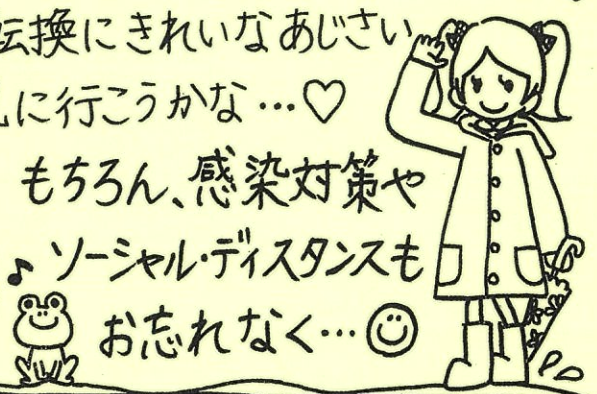 転換にきれいなあじさい
に行こうかな…♡
もちろん、感染対策や
ソーシャル・ディスタンスも
お忘れなく…